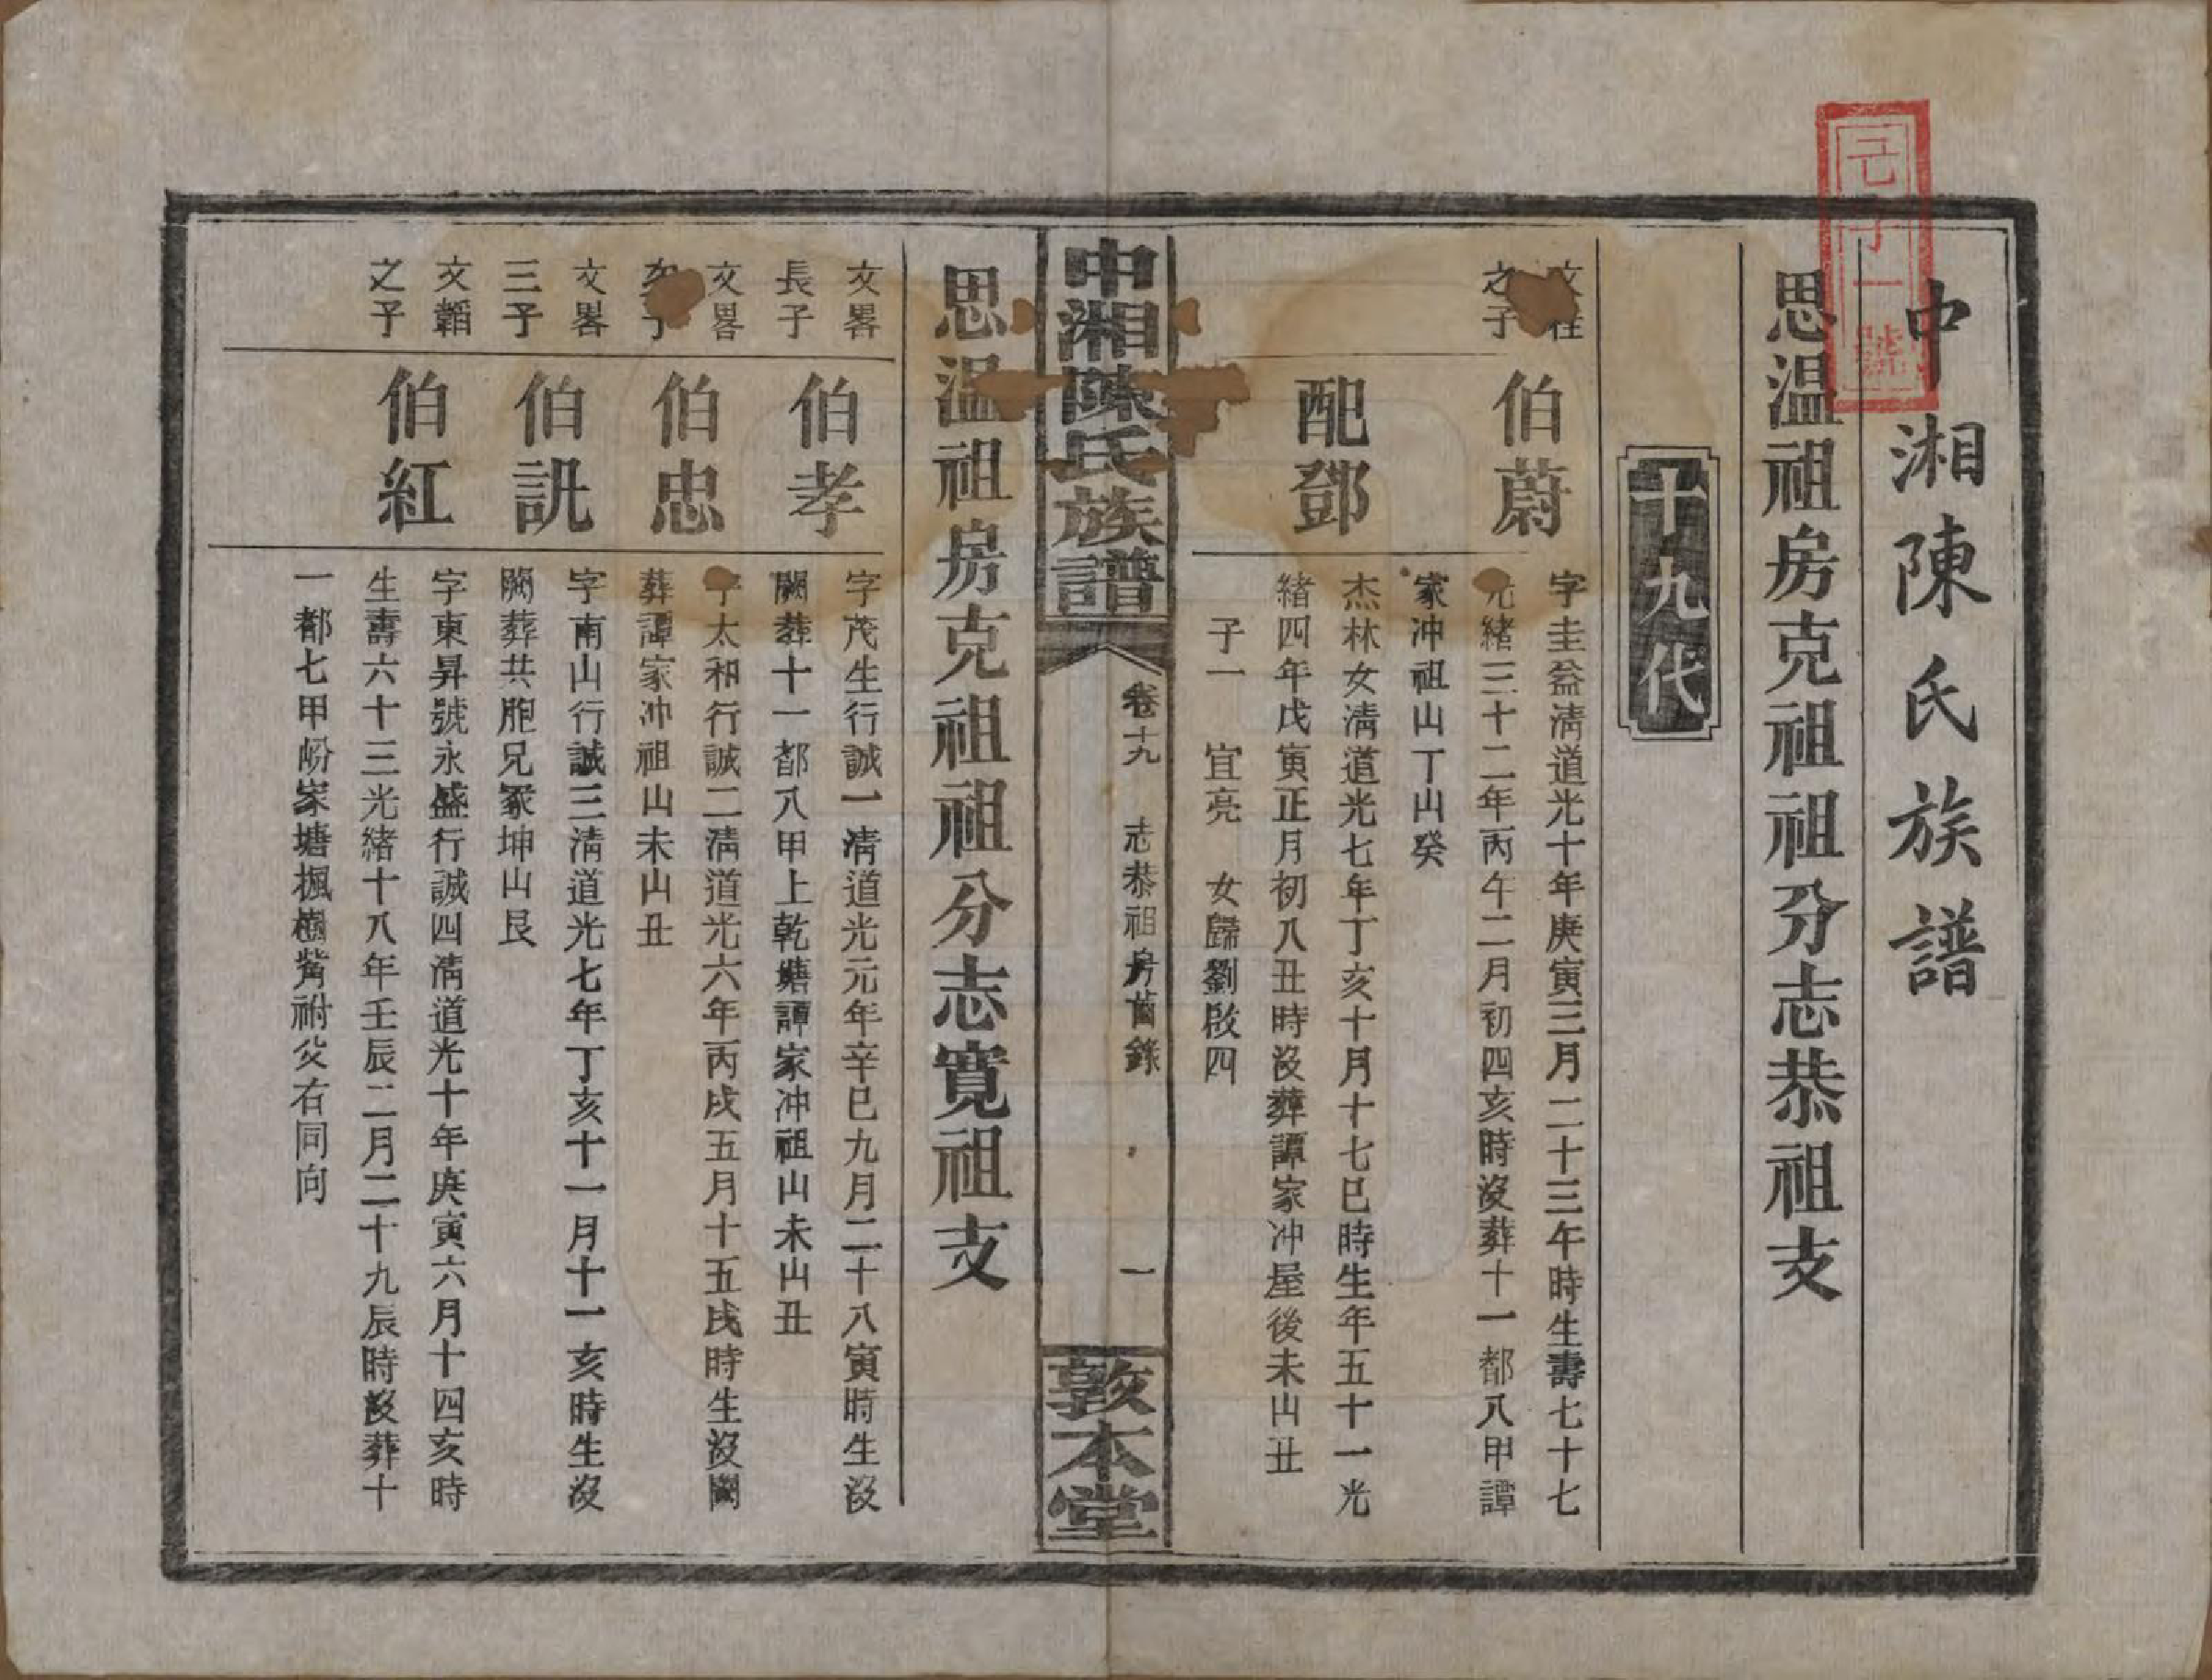 中湘陳氏族譜
思温祖房克祖祖分志恭祖支
十九代
之子
伯蔚
字圭益清道光十年庚寅三月二十三午時生壽七十七
光緒三十二年丙午二月初四亥時沒葬十一都八甲譚
家冲祖山丁山癸
配鄧
杰林女清道光七年丁亥十月十七巳時生年五十一光
緒四年戊寅正月初八丑時沒葬譚家冲屋後未山丑
子一 宜亮 女歸劉啟四
中湘陳氏族譜
卷十九 志恭祖房齒錄 一
敦本堂
思温祖房克祖祖分志寬祖支
文畧
長子
伯孝
字茂生行誠一清道光元年辛巳九月二十八寅時生沒
闕葬十一都八甲上乾塘譚家冲祖山未山丑
文畧
伯忠
字太和行誠二清道光六年丙戌五月十五戌時生沒闕
葬譚家冲祖山未山丑
文畧
三子
伯訊
字南山行誠三清道光七年丁亥十一月十一亥時生沒
闕葬共胞兄冢坤山艮
文韜
之子
伯紅
字東昇號永盛行誠四清道光十年庚寅六月十四亥時
生壽六十三光緒十八年壬辰二月二十九辰時沒葬十
一都七甲㟃家塘楓樹嘴祔父右同向